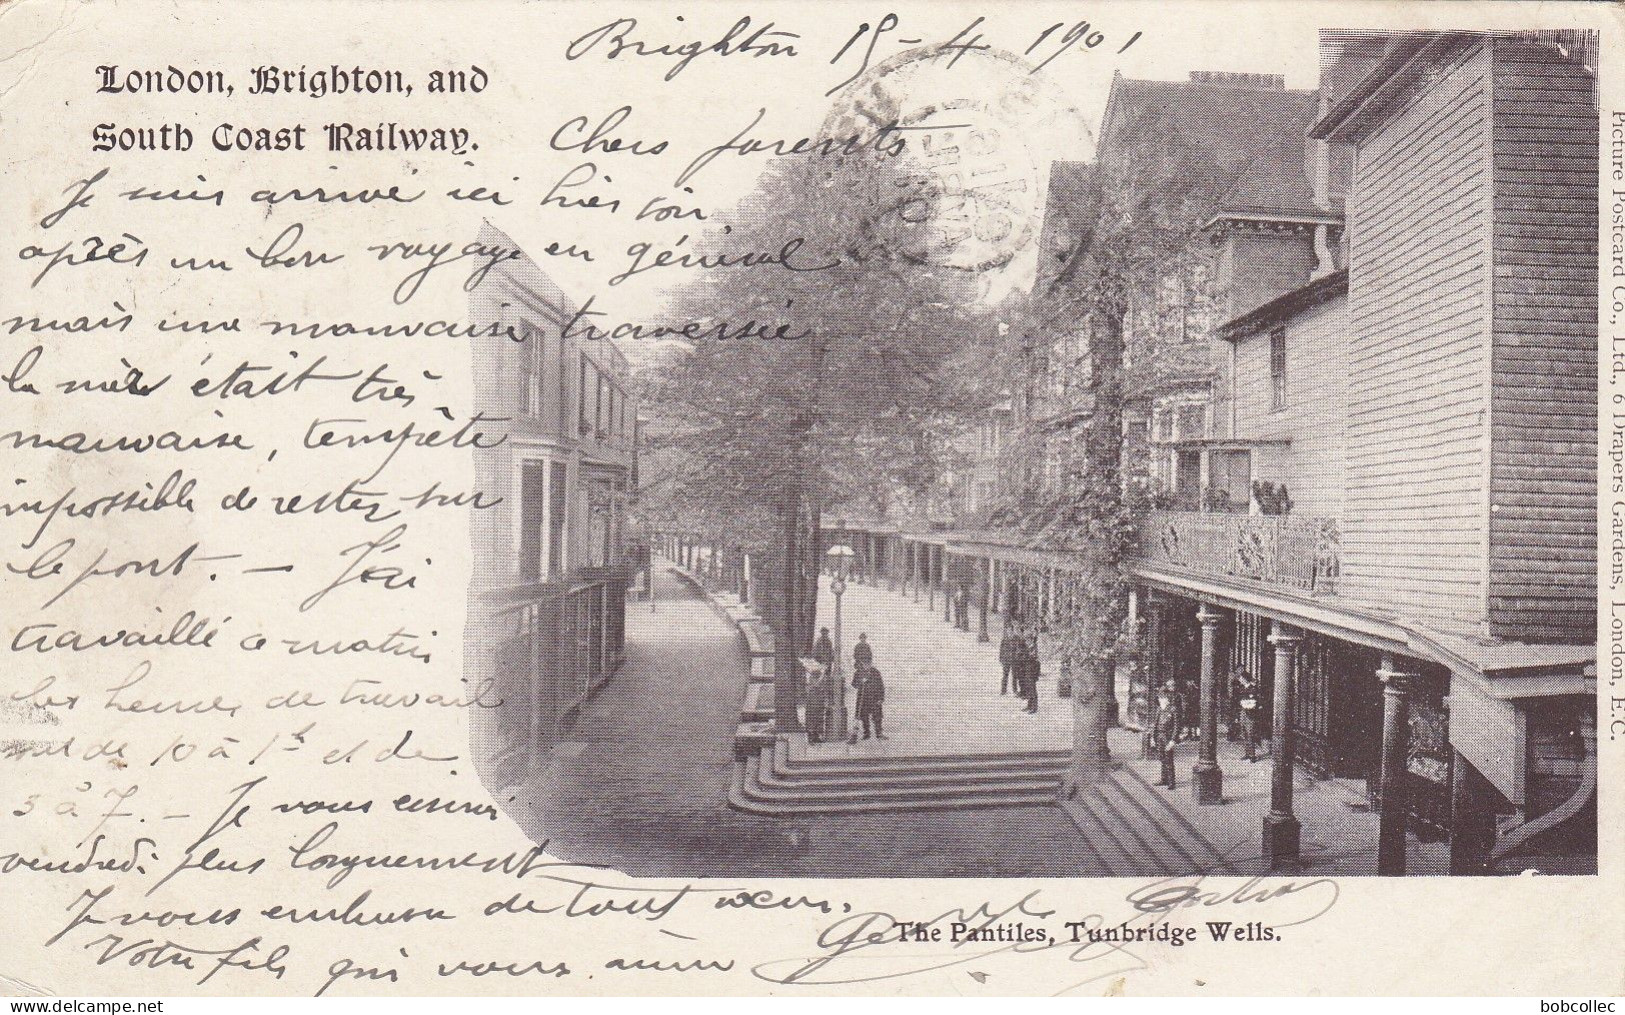 London, Brighton, and
South Coast Railway.
Brighton 15-4 1901
Chers parents
Je suis arrivé ici hier soir
après un bon voyage en général
mais une mauvaise traversée
la mèr était très
mauvaise, tempête
impossible de rester sur
le pont. — J'ai
travaillé ce matin
les heures de travail
sont de 10 à 1h et de
3 à 7. — Je vous écrirai
vendredi plus longuement
Je vous embrasse de tout cœur.
Votre fils qui vous aime
The Pantiles, Tunbridge Wells.
Picture Postcard Co., Ltd., 6 Drapers Gardens, London, E.C.
bobcollec